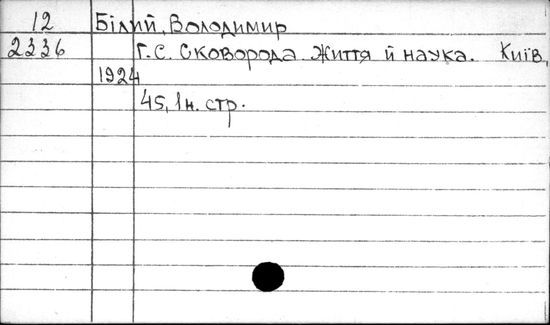 12 Білий, Володимир
2336 Г.С. Сковорода. Життя й наука. Київ,
1924
45, 1н. стр.